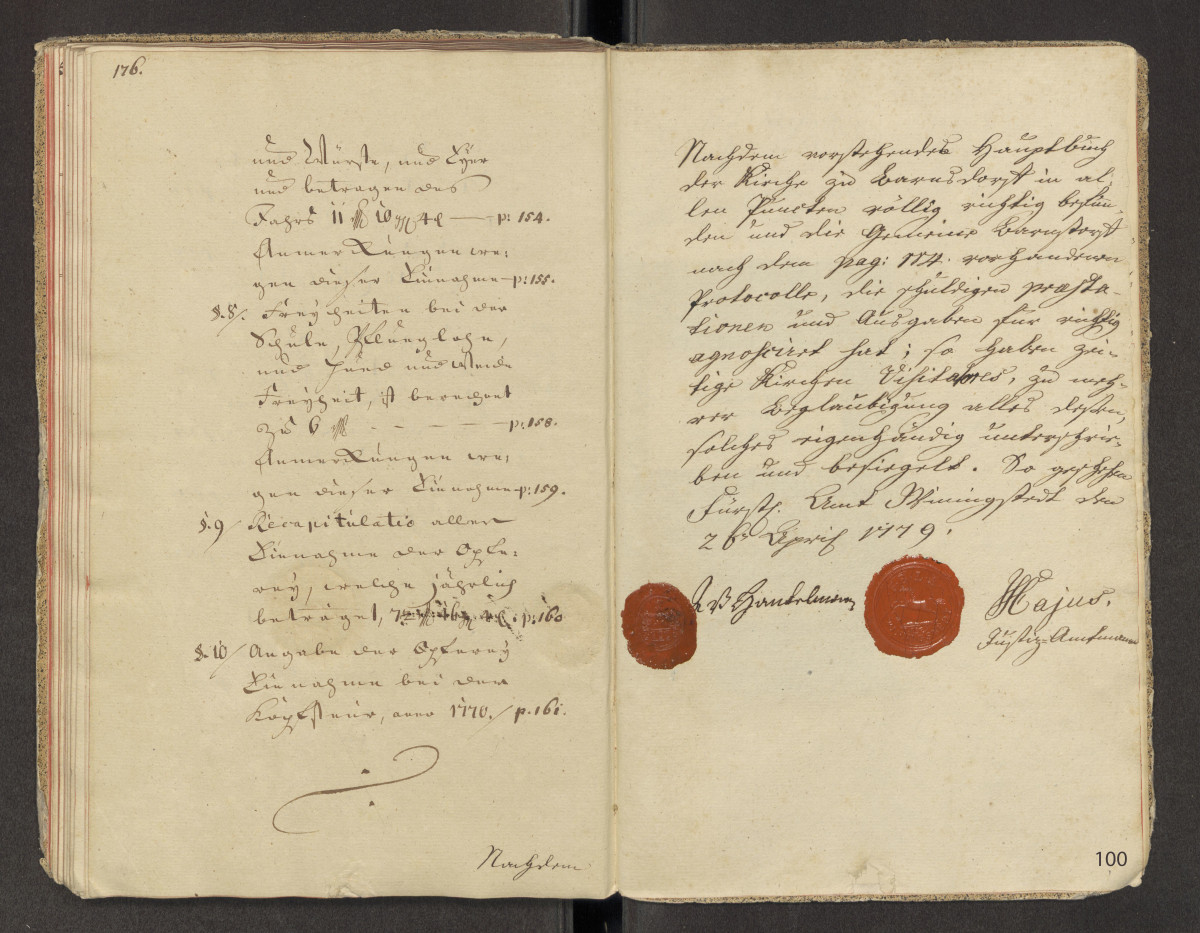 176.
und Würste, und Eyer
und betragen des
Jahrs 11 10 4 — p: 154.
Anmerkungen we:
gen dieser Einnahme — p: 155.
§. 8/. Freyheiten bei der
Schule, Pfluglohn,
und und Weide
Freyheit, ist berechnet
zu 6 — p: 158.
Anmerkungen we:
gen dieser Einnahme — p: 159.
§. 9/ Recapitulatio aller
Einnahme der Opfe:
rey, welche jährlich
beträget, p: 160
§. 10/ Angabe der Opferey
Einnahme bei der
Kopfsteur, anno 1770./ p. 161.
Nachdem
Nachdem vorstehendes Hauptbuch
der Kirche zu Barnsdorff in al,
len Puncten völlig richtig befun,
den und die Gemeine Barnstorff
nach dem pag: 174. vorhandenen
Protocolle, die schuldigen præsta-
tionen und Ausgaben für richtig
agnosciret hat; so haben zei-
tige Kirchen Visitatores, zu meh-
rer Beglaubigung alles dessen,
solches eigenhändig unterschrie-
ben und besiegelt. So geschehen
Fürstl. Amt Winingstedt den
26 April 1779.
Hantelmann
Majus.
Justiz-Amtmann
100